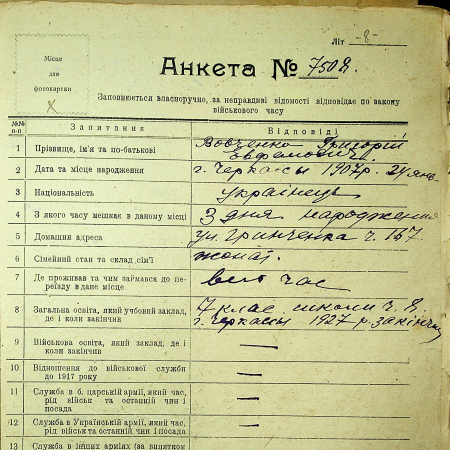 Літ -8-
Місце
для
фотокартки
Анкета № 750 Я.
Заповнюється власноручно, за неправдиві відомості відповідає по закону
військового часу
№№ п-п. Запитання Відповіді
1 Прізвище, ім'я та по-батькові Вовченко Григорій
2 Дата та місце народження г. Черкассы 1907р. 24 янв.
3 Національність Українець
4 З якого часу мешкає в даному місці З дня народження
5 Домашня адреса ул. Грінченка ч. 167
6 Сімейний стан та склад сім'ї жонат.
7 Де проживав та чим займався до пе-
реїзду в дане місце весь час
8 Загальна освіта, який учбовий заклад,
де і коли закінчив 7 клас школи ч. 8.
г. Черкассы 1927 р. закінчив
9 Військова освіта, який заклад, де і
коли закінчив —
10 Відношення до військової служби
до 1917 року —
11 Служба в б. царській армії, який час,
рід військ та останній чин і
посада —
12 Служба в Українській армії, який час,
рід військ та останній чин і посада —
13 Служба в інших арміях (за винятком